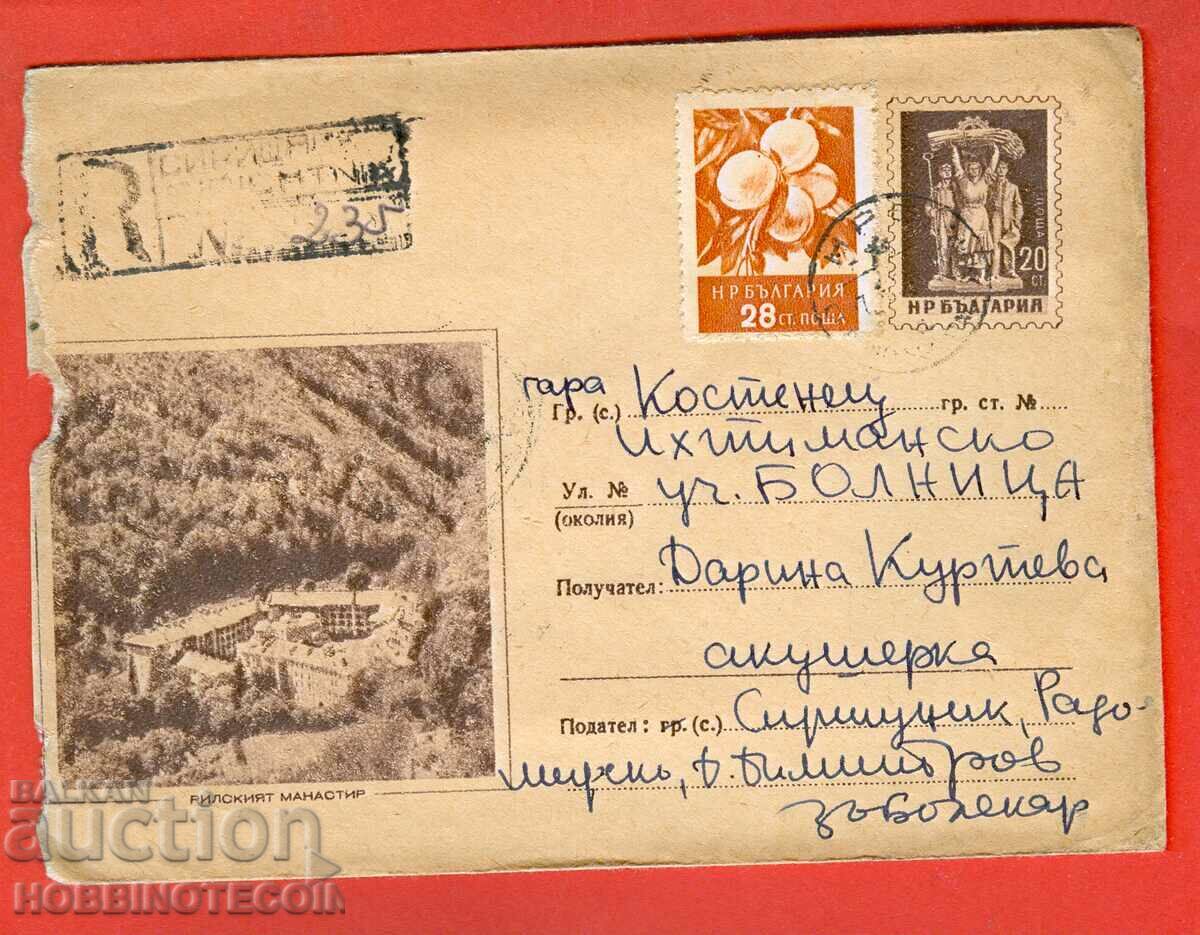 R
235
НРБЪЛГАРИЯ
28 СТ. ПОЩА
ПОЩА
20 СТ
НР БЪЛГАРИЯ
гара
Гр. (с.) Костенец гр. ст. №
Ихтиманско
Ул. № уч. БОЛНИЦА
(околия)
Получател: Дарина Куртева
акушерка
Подател: гр. (с.) Сирищник, Радо-
мирско, Димитров
зъболекар
РИЛСКИЯТ МАНАСТИР
BALKAN
auction
HOBBINOTECOIN